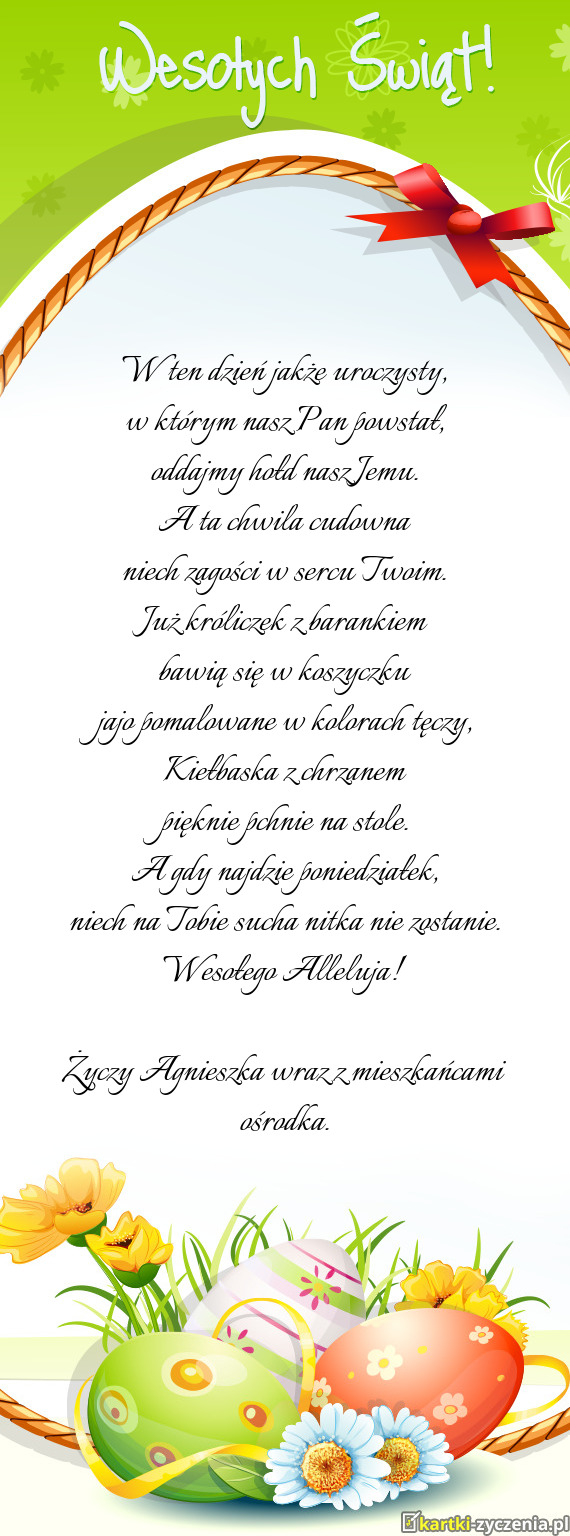 Wesołych Świąt!
W ten dzień jakże uroczysty,
w którym nasz Pan powstał,
oddajmy hołd nasz Jemu.
A ta chwila cudowna
niech zagości w sercu Twoim.
Już króliczek z barankiem
bawią się w koszyczku
jajo pomalowane w kolorach tęczy,
Kiełbaska z chrzanem
pięknie pchnie na stole.
A gdy najdzie poniedziałek,
niech na Tobie sucha nitka nie zostanie.
Wesołego Alleluja!
Życzy Agnieszka wraz z mieszkańcami
ośrodka.
kartki-zyczenia.pl